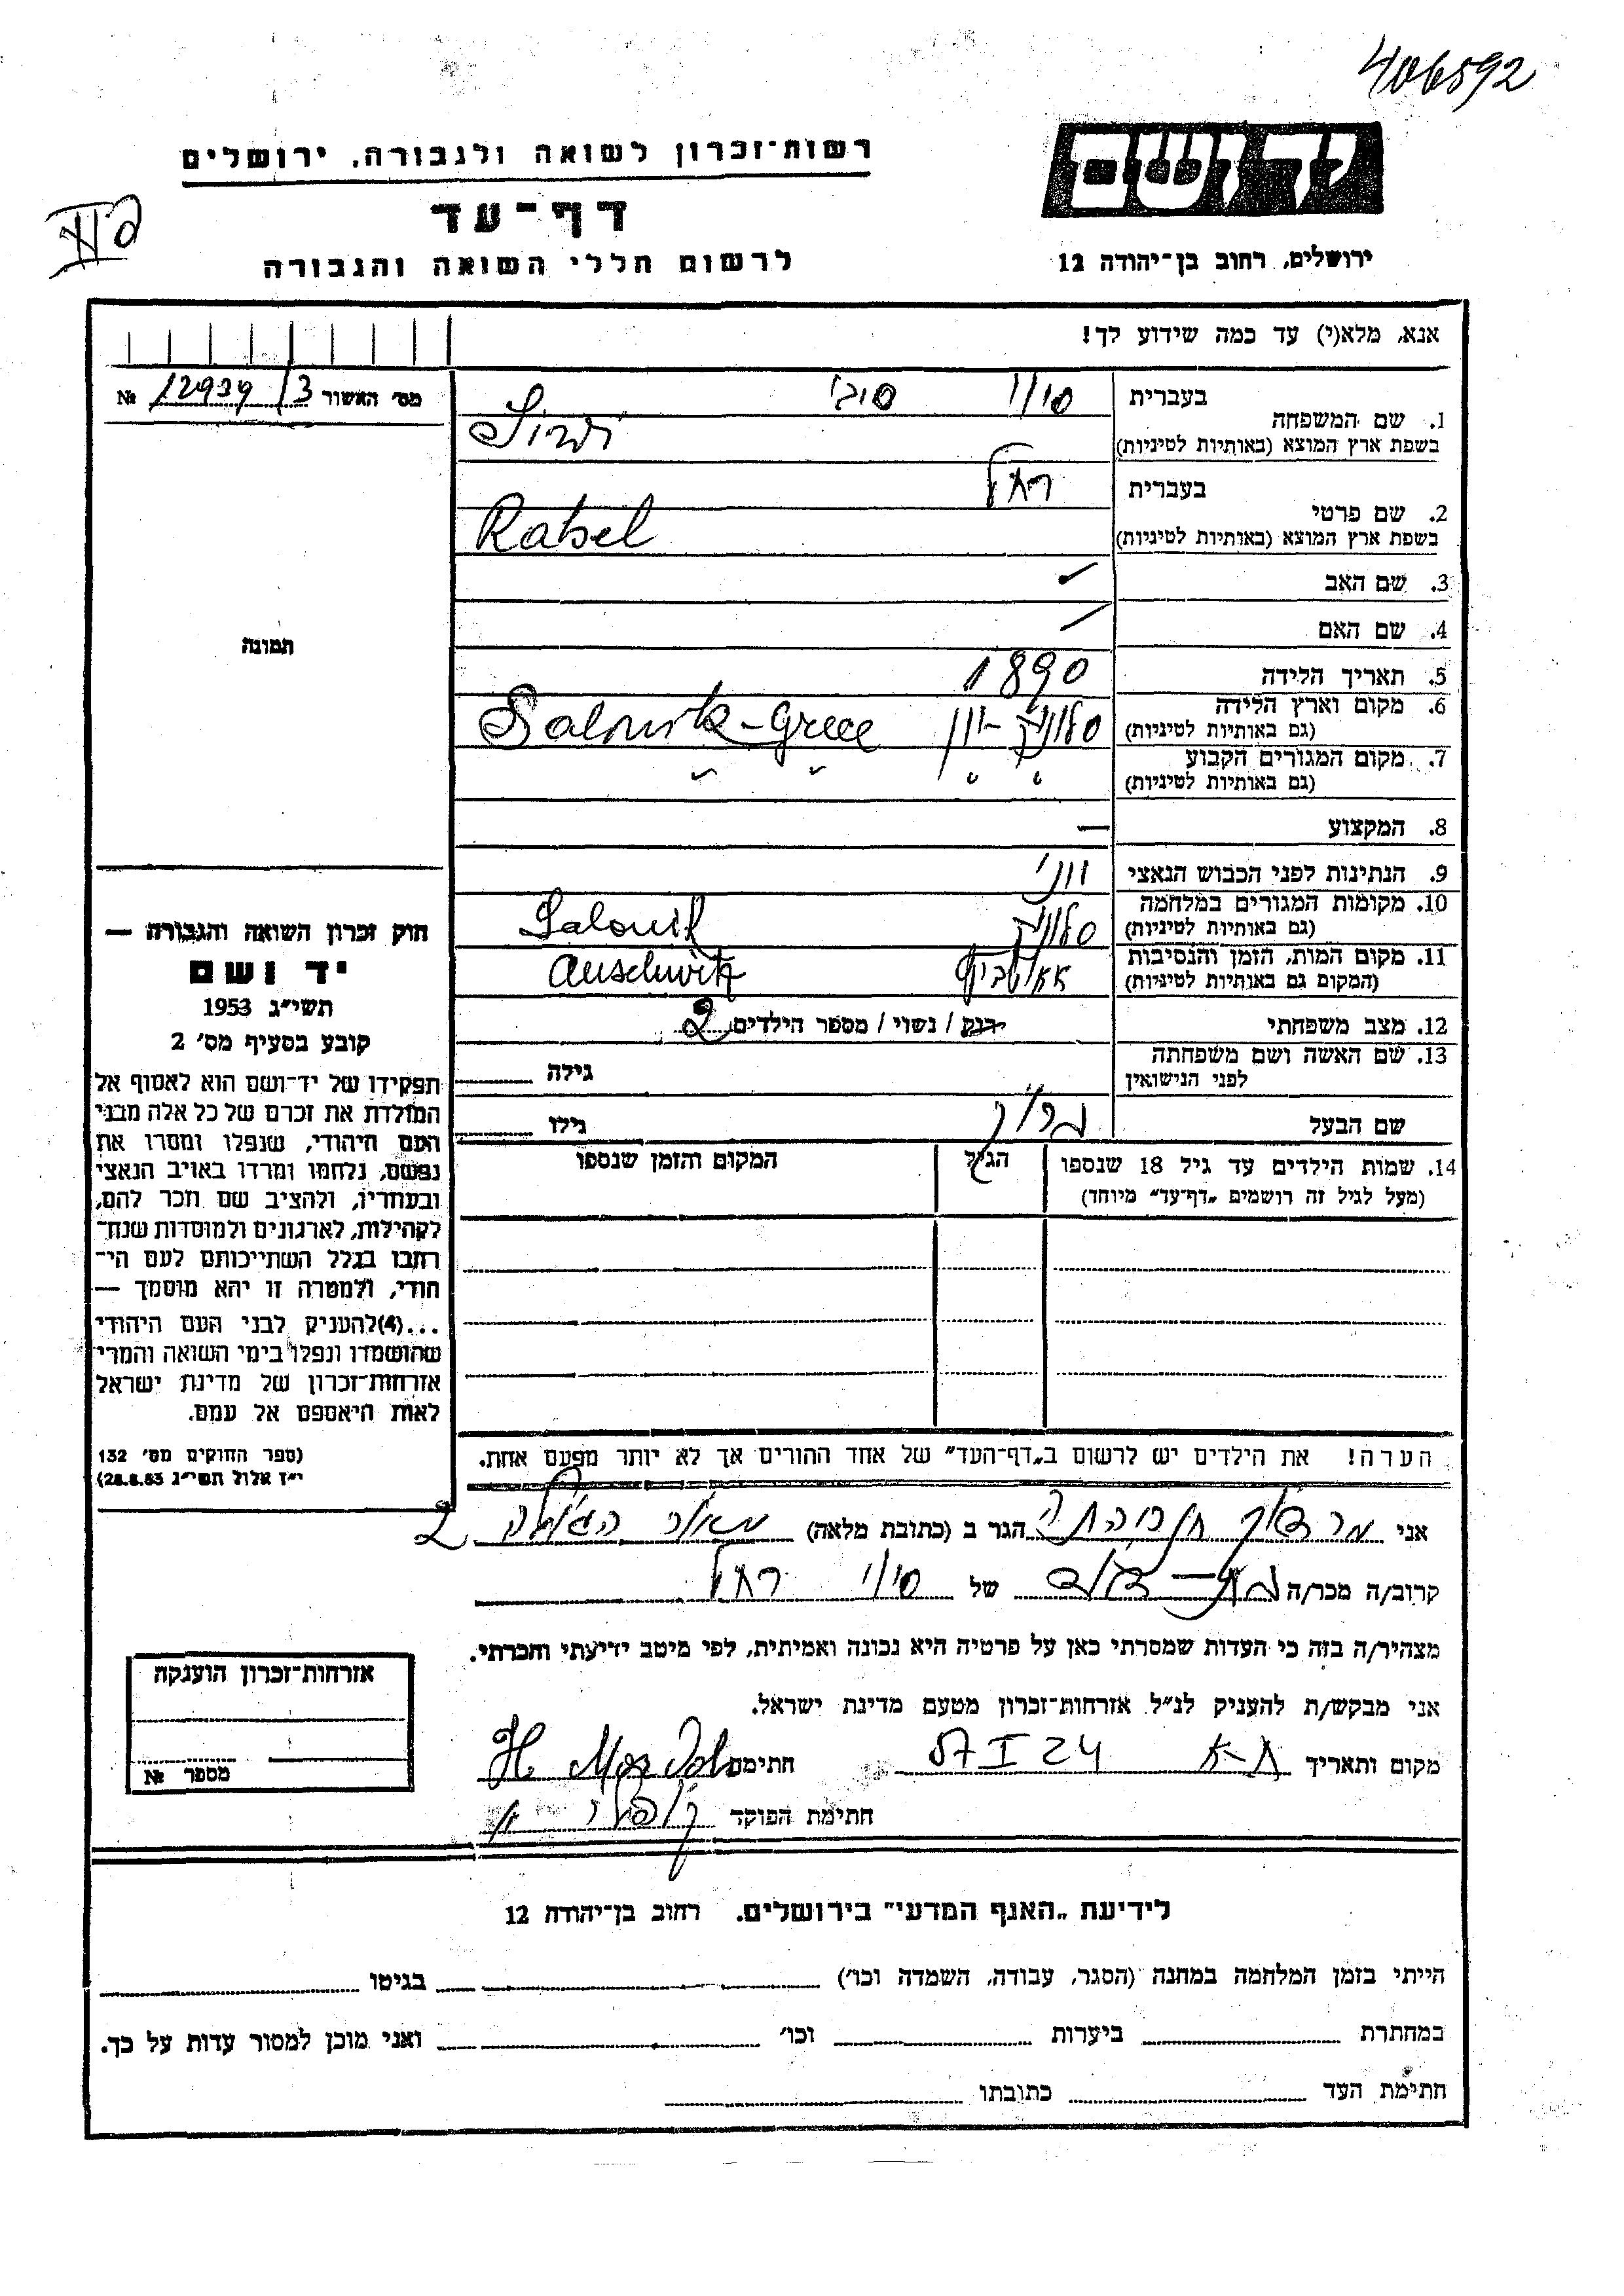 406592
יד ושם
רשות-זכרון לשואה ולגבורה, ירושלים
דף-עד
לרשום חללי השואה והגבורה
ירושלים, רחוב בן-יהודה 12
אנא, מלא(י) עד כמה שידוע לך!
מס׳ האשור 12939/3 №
תמונה
1. שם המשפחה
בעברית
בשפת ארץ המוצא (באותיות לטיניות)
2. שם פרטי
בעברית רחל
בשפת ארץ המוצא (באותיות לטיניות) Rahel
3. שם האב
4. שם האם
5. תאריך הלידה 1890
6. מקום וארץ הלידה סלוניק - יון Salonik - Grece
(גם באותיות לטיניות)
7. מקום המגורים הקבוע " " " "
(גם באותיות לטיניות)
8. המקצוע —
9. הנתינות לפני הכבוש הנאצי יוני
10. מקומות המגורים במלחמה סלוניק Salonik
(גם באותיות לטיניות)
11. מקום המות, הזמן והנסיבות Auschwitz
(המקום גם באותיות לטיניות)
12. מצב משפחתי רווק / נשוי / מספר הילדים 2
13. שם האשה ושם משפחתה
לפני הנישואין
גילה
שם הבעל
גילו
14. שמות הילדים עד גיל 18 שנספו
(מעל לגיל זה רושמים „דף-עד” מיוחד)
הגיל
המקום והזמן שנספו
הערה! את הילדים יש לרשום ב„דף-העד” של אחד ההורים אך לא יותר מפעם אחת.
חוק זכרון השואה והגבורה —
יד ושם
תשי״ג 1953
קובע בסעיף מס׳ 2
תפקידו של יד-ושם הוא לאסוף אל
המולדת את זכרם של כל אלה מבני
העם היהודי, שנפלו ומסרו את
נפשם, נלחמו ומרדו באויב הנאצי
ובעוזריו, ולהציב שם וזכר להם,
לקהילות, לארגונים ולמוסדות שנח־
רבו בגלל השתייכותם לעם הי־
הודי, ולמטרה זו יהא מוסמך —
...(4)להעניק לבני העם היהודי
שהושמדו ונפלו בימי השואה והמרי
אזרחות-זכרון של מדינת ישראל
לאות היאספם אל עמם.
(ספר החוקים מס׳ 132
י״ז אלול תשי״ג 28.8.53)
אני מרדכי הגר ב (כתובת מלאה) 2
קרוב/ה מכר/ה של רחל
מצהיר/ה בזה כי העדות שמסרתי כאן על פרטיה היא נכונה ואמיתית, לפי מיטב ידיעתי והכרתי.
אני מבקש/ת להעניק לנ״ל אזרחות-זכרון מטעם מדינת ישראל.
מקום ותאריך ת-א 24 I 57 חתימה
חתימת הפוקד
אזרחות-זכרון הוענקה
מספר №
לידיעת „האגף המדעי” בירושלים. רחוב בן-יהודה 12
הייתי בזמן המלחמה במחנה (הסגר, עבודה, השמדה וכו׳) בגיטו
במחתרת ביערות וכו׳ ואני מוכן למסור עדות על כך.
חתימת העד כתובתו